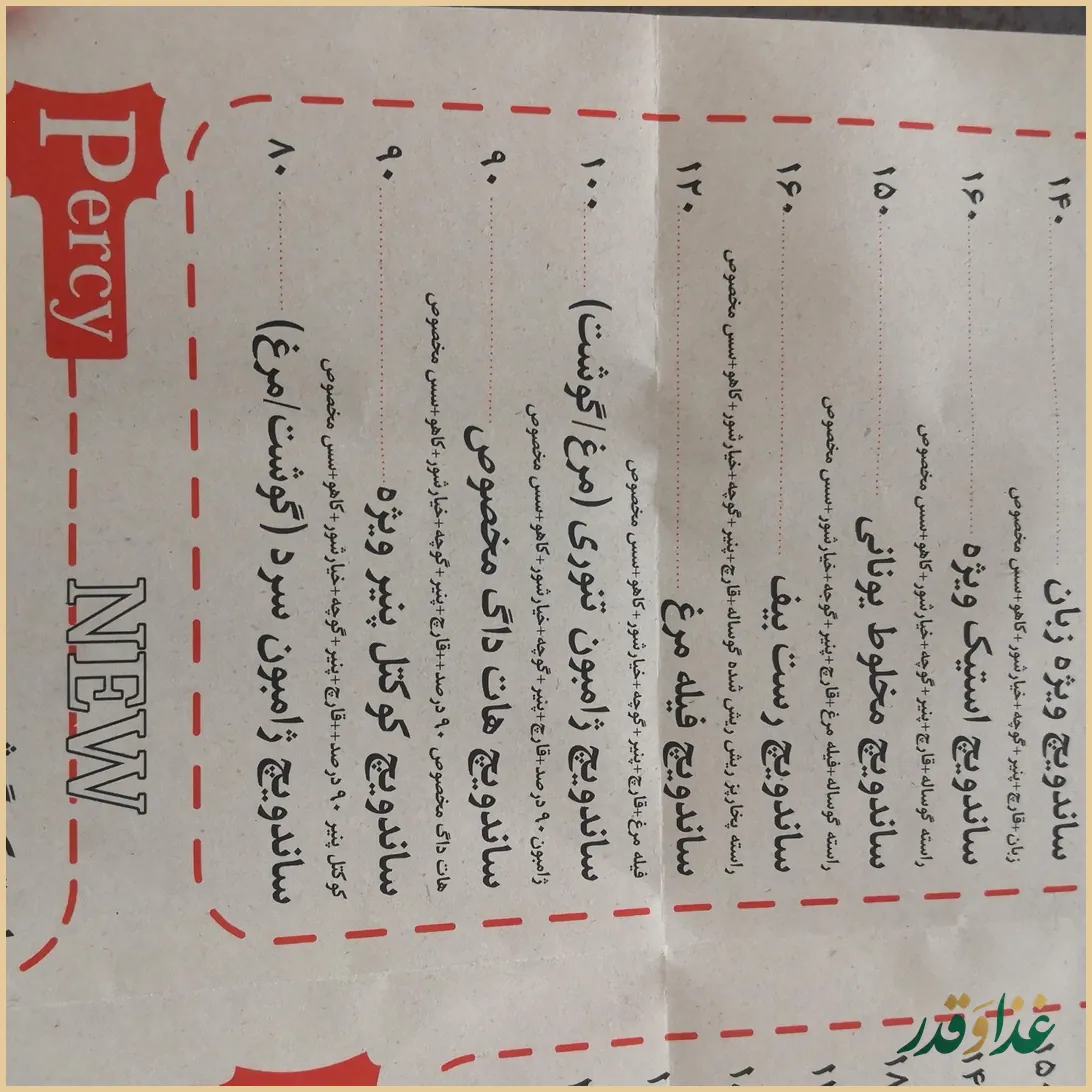 ساندویچ ویژه زبان ۱۴۰
زبان+قارچ+پنیر+گوجه+خیارشور+کاهو+سس مخصوص
ساندویچ استیک ویژه ۱۶۰
راسته گوساله+قارچ+پنیر+گوجه+خیارشور+کاهو+سس مخصوص
ساندویچ مخلوط یونانی ۱۵۰
راسته گوساله+فیله مرغ+قارچ+پنیر+گوجه+خیارشور+سس مخصوص
ساندویچ رست بیف ۱۶۰
راسته بخارپز ریش ریش شده گوساله+قارچ+پنیر+گوجه+خیارشور+کاهو+سس مخصوص
ساندویچ فیله مرغ ۱۲۰
فیله مرغ+قارچ+پنیر+گوجه+خیارشور+کاهو+سس مخصوص
ساندویچ ژامبون تنوری (مرغ/گوشت) ۱۰۰
ژامبون ۹۰ درصد+قارچ+پنیر+گوجه+خیارشور+کاهو+سس مخصوص
ساندویچ هات داگ مخصوص ۹۰
هات داگ مخصوص ۹۰ درصد++قارچ+پنیر+گوجه+خیارشور+کاهو+سس مخصوص
ساندویچ کوکتل پنیر ویژه ۹۰
کوکتل پنیر ۹۰ درصد++قارچ+پنیر+گوجه+خیارشور+کاهو+سس مخصوص
ساندویچ ژامبون سرد (گوشت/مرغ) ۸۰
NEW
Percy
غذا و قدر